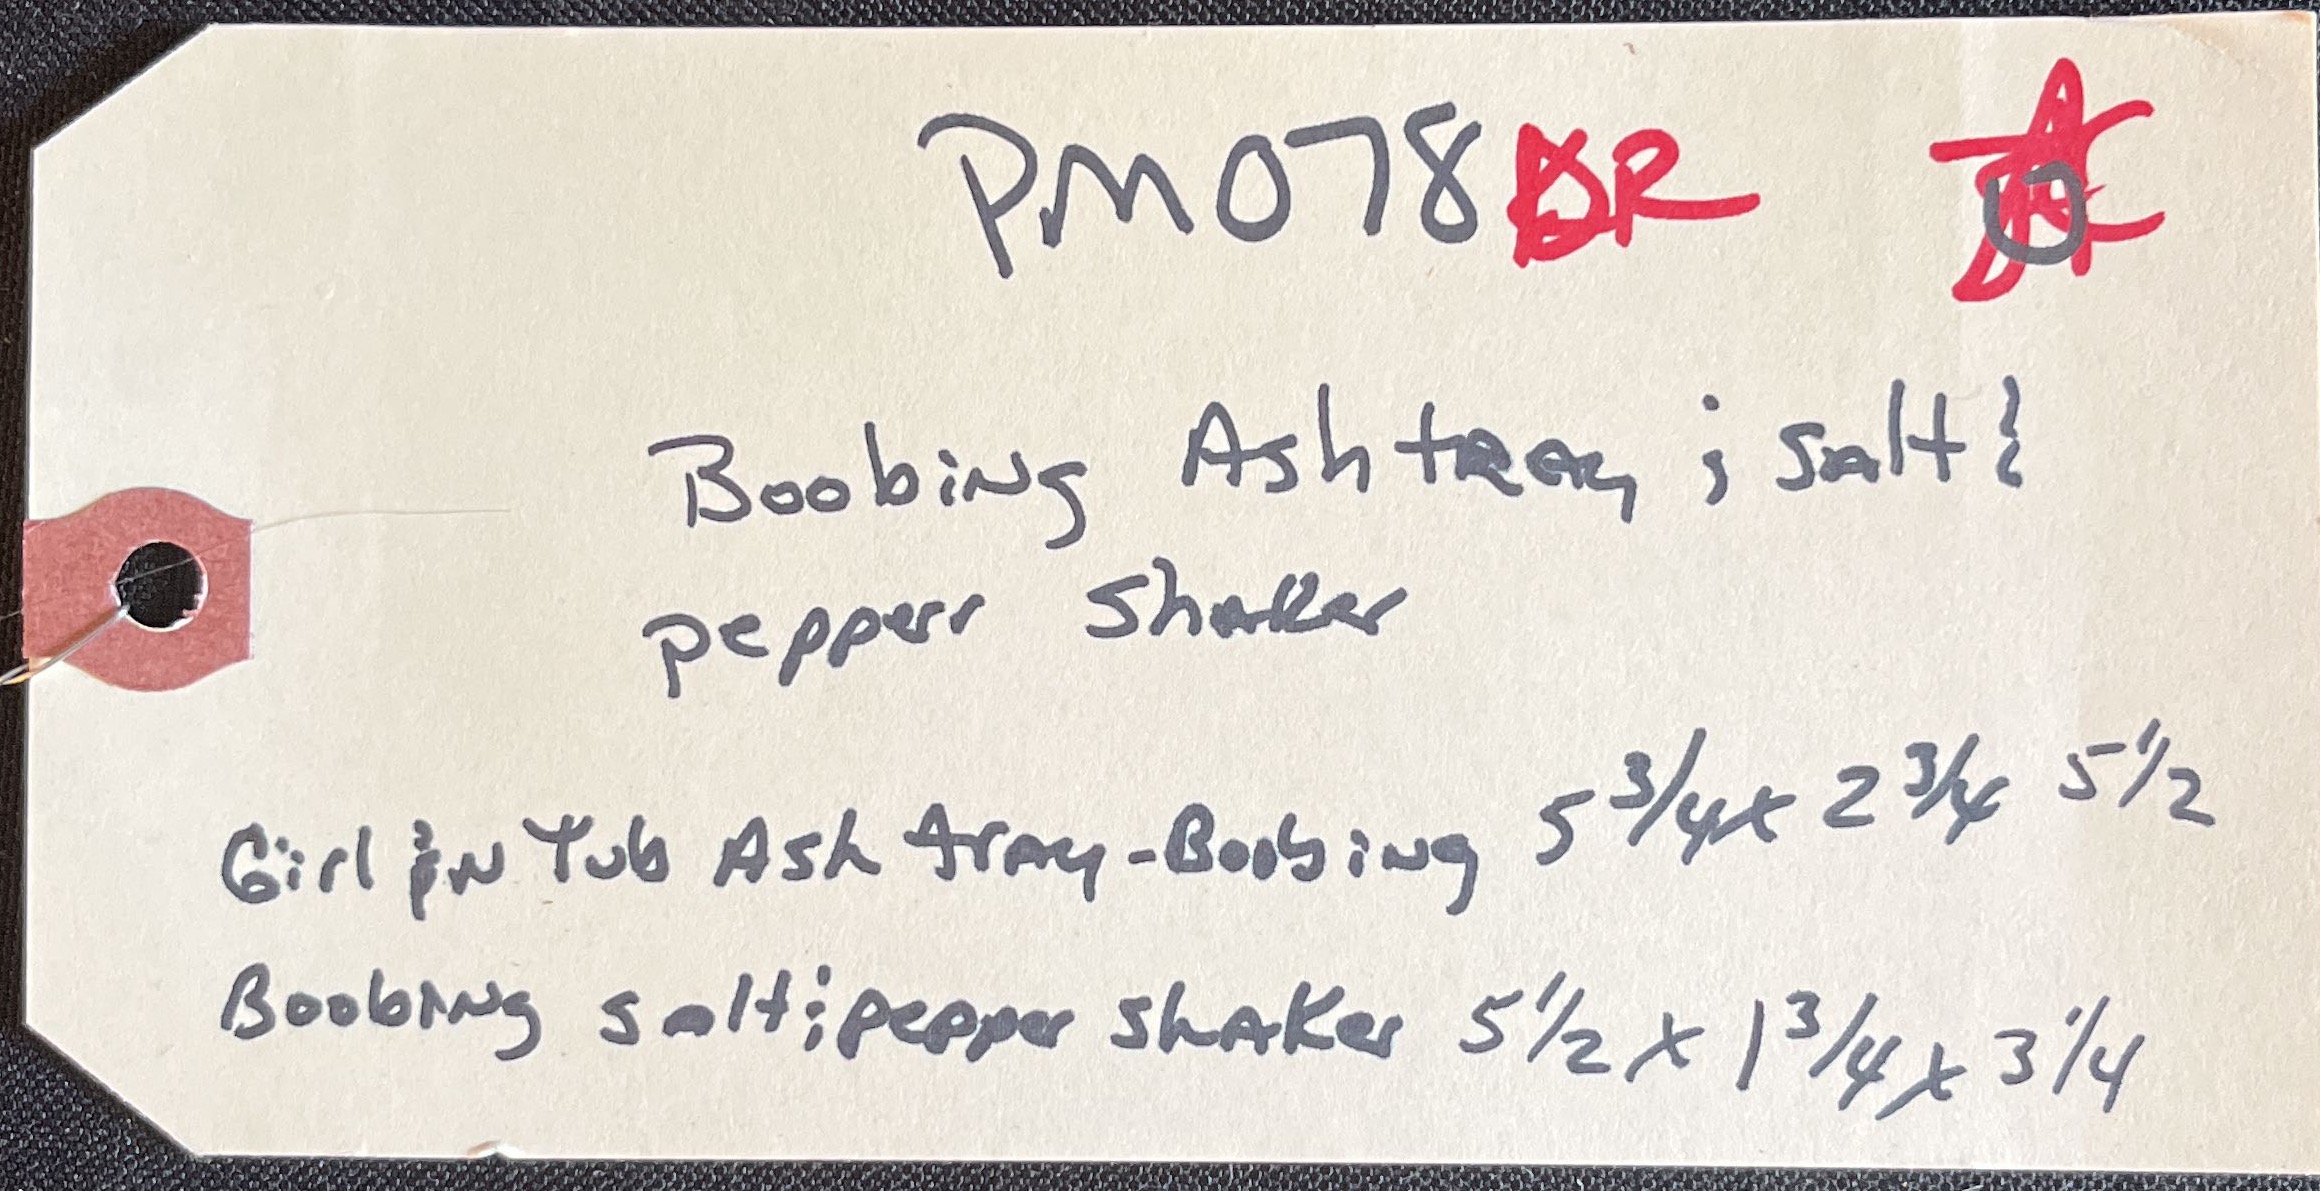 PM078 R
Boobing Ash tray ; salt ;
pepper shaker
Girl in Tub Ash tray - Boobing 5 3/4 x 2 3/4 5 1/2
Boobing salt ; pepper shaker 5 1/2 x 1 3/4 x 3 1/4